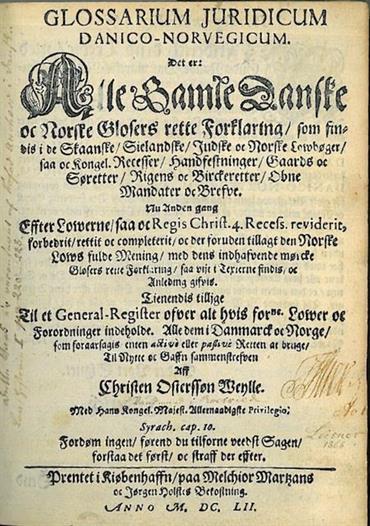 GLOSSARIUM JURIDICUM
DANICO-NORVEGICUM.
Det er:
Alle Gamle Danske
oc Norske Glosers rette Forklaring / som fin-
dis i de Skaanske / Sielandske / Judske oc Norske Lowbøger /
saa oc Kongel. Recesser / Handfestninger / Gaards oc
Søretter / Rigens oc Birckeretter / Obne
Mandater oc Brefve.
Nu Anden gang
Effter Lowerne / saa oc Regis Christ. 4. Recess. reviderit,
forbedrit / rettit oc completerit / oc der foruden tillagt den Norske
Lows fulde Mening / med dens indhafvende mørcke
Glosers rette Forklaring / saa vijt i Texterne findis, oc
Anledning gifvis.
Tienendis tillige
Til et General-Register ofver alt hvis forne. Lower oc
Forordninger indeholde. Alle dem i Danmarck oc Norge /
som foraarsagis enten activè eller passivè Retten at bruge /
Til Nytte oc Gaffn sammenskrefven
Aff
Christen Osterssøn Weylle.
Med Hans Kongel. Majest. Allernaadigste Privilegio.
Syrach. cap. 10.
Fordøm ingen / førend du tilforne veedst Sagen /
forstaa det først / oc straff der effter.
Prentet i Kiøbenhaffn / paa Melchior Martzans
oc Jørgen Holstes Bekostning.
ANNO M. DC. LII.